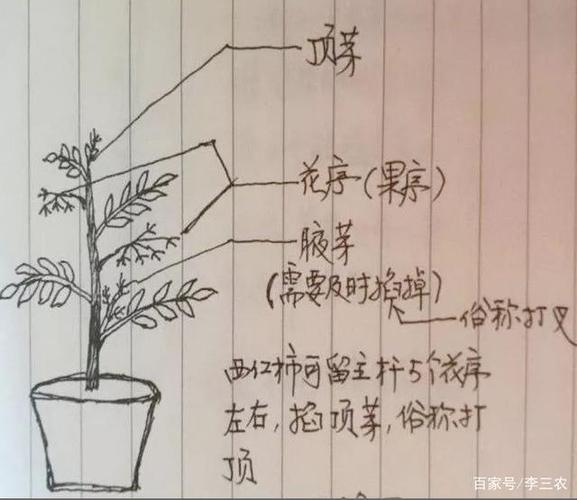 顶芽
花序(果序)
腋芽
(需要及时掐掉)
俗称打叉
西红柿可留主杆5个花序
左右,掐顶芽,俗称打
顶
百家号/李三农